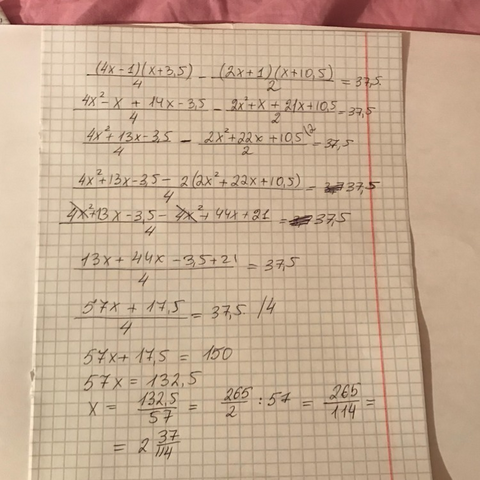 (4x-1)(x+3,5)/4 - (2x+1)(x+10,5)/2 = 37,5.
4x²-x+14x-3,5/4 - 2x²+x+21x+10,5/2 = 37,5
4x²+13x-3,5/4 - 2x²+22x+10,5/2 |2 = 37,5
4x²+13x-3,5-2(2x²+22x+10,5)/4 = 37,5
4x²+13x-3,5-4x²+44x+21/4 = 37,5
13x+44x-3,5+21/4 = 37,5
57x+17,5/4 = 37,5. /4
57x+17,5 = 150
57x = 132,5
x = 132,5/57 = 265/2 : 57 = 265/114 =
= 2 37/114